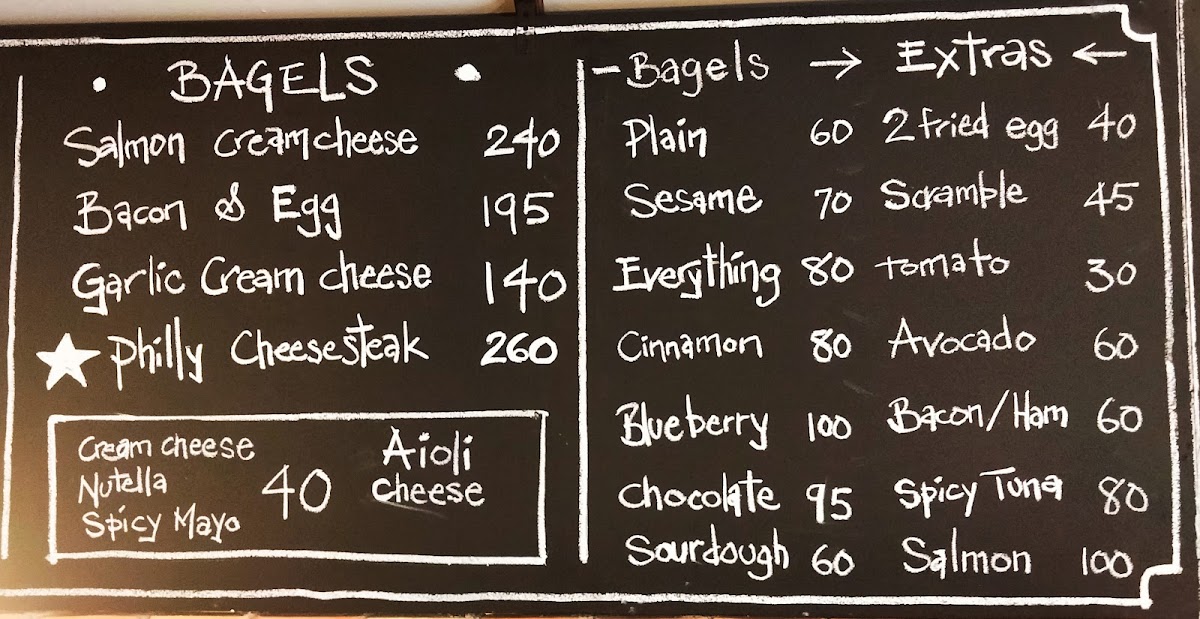 • BAGELS •
Salmon creamcheese 240
Bacon & Egg 195
Garlic Cream cheese 140
★ Philly Cheesesteak 260
Cream cheese
Nutella
Spicy Mayo
40
Aioli
cheese
- Bagels → Extras ←
Plain 60 2 fried egg 40
Sesame 70 Scramble 45
Everything 80 tomato 30
Cinnamon 80 Avocado 60
Blueberry 100 Bacon/Ham 60
Chocolate 95 Spicy Tuna 80
Sourdough 60 Salmon 100